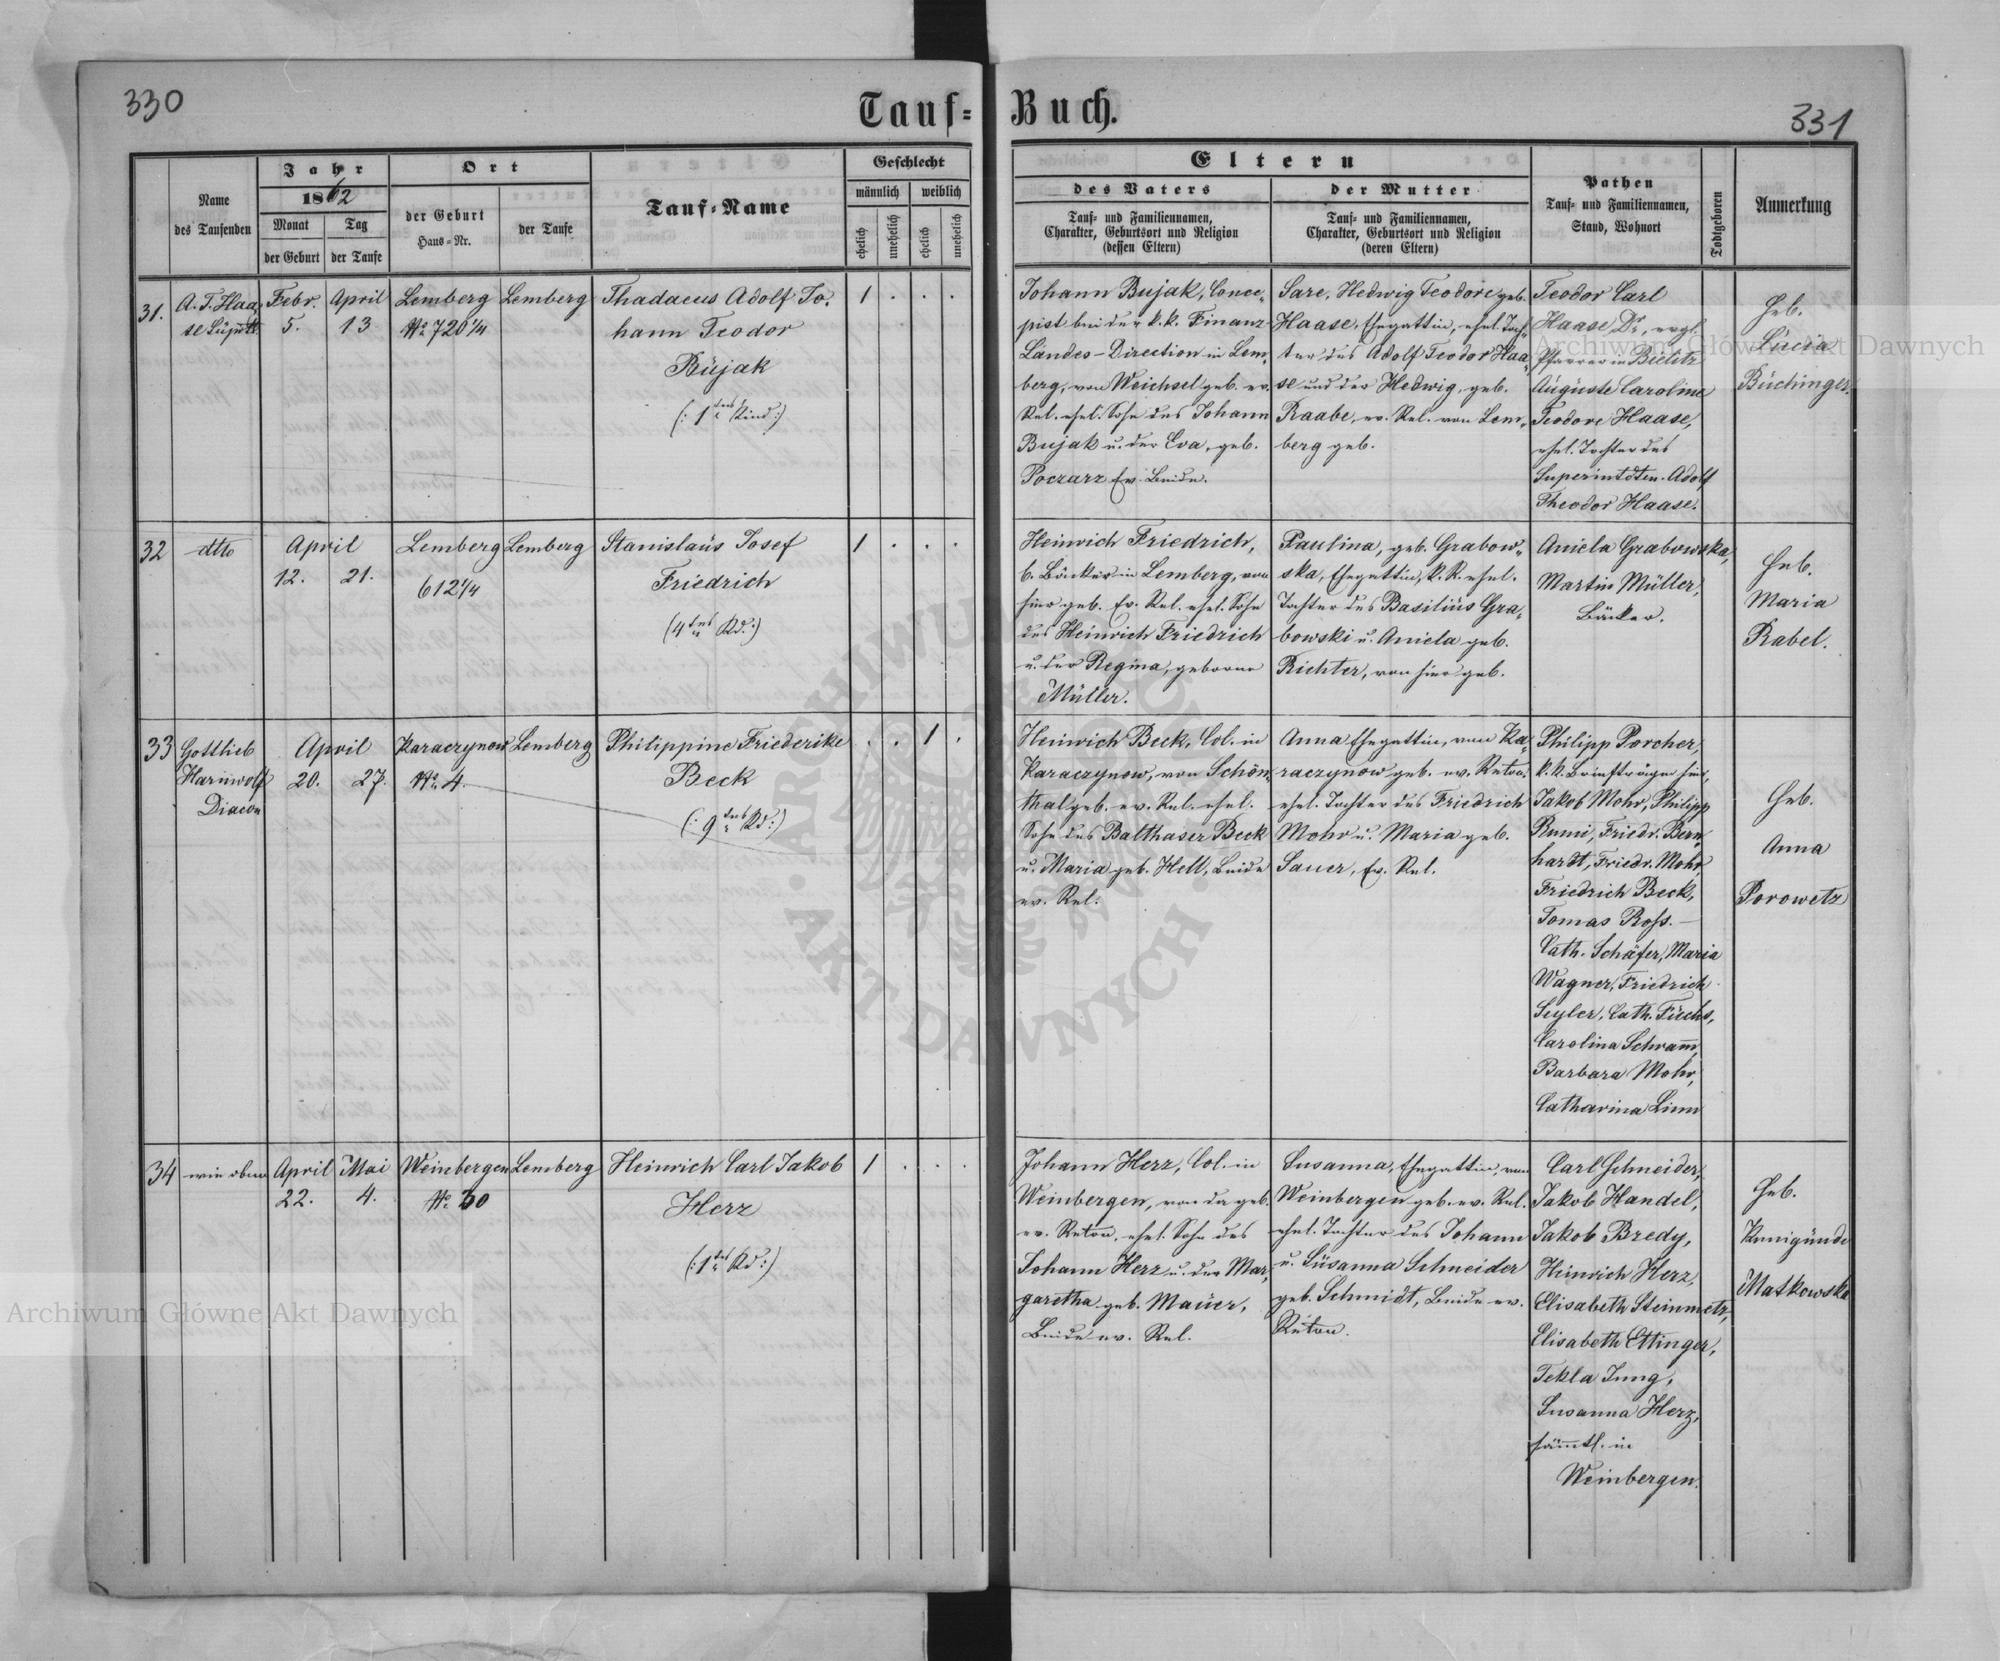 330
Tauf=
Buch.
331
Name
des Taufenden
Jahr
1862
Monat
Tag
der Geburt
der Taufe
Ort
der Geburt
Haus=Nr.
der Taufe
Tauf=Name
Geschlecht
männlich
weiblich
ehelich
unehelich
ehelich
unehelich
Eltern
des Vaters
Tauf= und Familiennamen,
Charakter, Geburtsort und Religion
(dessen Eltern)
der Mutter
Tauf= und Familiennamen,
Charakter, Geburtsort und Religion
(deren Eltern)
Pathen
Tauf= und Familiennamen,
Stand, Wohnort
Todtgeboren
Anmerkung
31.
A. T. Haa=
se Supdtt.
Febr.
5.
April
13
Lemberg
No 720 1/4
Lemberg
Thadaeus Adolf Jo=
hann Teodor
Bujak
(: 1tes Kind :)
1 . . .
Johann Bujak, Conce=
pist bei der k. k. Finanz=
Landes-Direction in Lem=
berg, von Weichsel geb. ev.
Rel. ehel. Sohn des Johann
Bujak u. der Eva, geb.
Poczarz Ev. Beide.
Sare, Hedwig Teodore geb.
Haase, Ehegattin, ehel. Toch=
ter des Adolf Teodor Haa=
se und der Hedwig, geb.
Raabe, ev. Rel. von Lem=
berg geb.
Teodor Carl
Haase, Dr., evgl.
Pfarrer in Bielitz
Auguste Caroline
Teodore Haase,
ehel. Tochter des
Superintdten. Adolf
Theodor Haase.
Heb.
Lucia
Buchinger.
32
dtto
April
12. 21.
Lemberg
612 1/4
Lemberg
Stanislaus Josef
Friedrich
(4tes Kd:)
1 . . .
Heinrich Friedrich,
b. Bäcker in Lemberg, von
hier geb. Ev. Rel. ehel. Sohn
des Heinrich Friedrich
u. der Regina, geborne
Müller.
Paulina, geb. Grabow=
ska, Ehegattin, k. R. ehel.
Tochter des Basilius Gra=
bowski u. Aniela geb.
Richter, von hier geb.
Aniela Grabowska,
Martin Müller,
Bäcker.
Heb.
Maria
Rabel.
33
Gottlieb
Harnwolf
Diacon
April
20. 27.
Karaczynow
No 4.
Lemberg
Philippine Friederike
Beck
(: 9tes Kd:)
. . 1 .
Heinrich Beck, Col. in
Karaczynow, von Schön=
thal geb. ev. Rel. ehel.
Sohn des Balthaser Beck
u. Maria geb. Hell, Beide
ev. Rel.
Anna Ehegattin, von Ka=
raczynow geb. ev. Reton.
ehel. Tochter des Friedrich
Mohr u. Maria geb.
Sauer, Ev. Rel.
Philipp Porcher,
k. k. Briefträger hier,
Jakob Mohr, Philipp
Rumi, Friedr. Bern=
hardt, Friedr. Mohr,
Friedrich Beck,
Tomas Ross. —
Cath. Schäfer, Maria
Wagner, Friedrich
Seyler, Cath. Fuchs,
Carolina Schramm,
Barbara Mohr,
Catharina Linn
Heb.
Anna
Porowetz
34
wie oben
April
22.
Mai
4.
Weinbergen
No 30
Lemberg
Heinrich Carl Jakob
Herz
(: 1tes Kd:)
1 . . .
Johann Herz, Col. in
Weinbergen, von da geb.
ev. Reton. ehel. Sohn des
Johann Herz u. der Mar=
garetha geb. Mauer,
Beide ev. Rel.
Susanna, Ehegattin, von
Weinbergen geb. ev. Rel.
ehel. Tochter des Johann
u. Susanna Schneider
geb. Schmidt, Beide ev.
Reton.
Carl Schneider,
Jakob Handel,
Jakob Bredy,
Heinrich Herz,
Elisabeth Steinmetz,
Elisabeth Ettinger,
Tekla Jung,
Susanna Herz,
sämtl. in
Weinbergen.
Heb.
Kunigunde
Matkowska
Archiwum Główne Akt Dawnych
Archiwum Główne Akt Dawnych